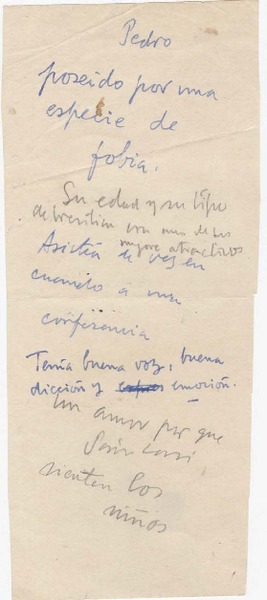 Pedro
poseido por una
especie de
fobia.
Su edad y su tipo
de brasilian uno de sus
mayores atractivos
Asistía de vez en
cuando a una
conferencia
Tenía buena voz, buena
dicción y emoción.
Un amor por que
casi
sienten los
niños